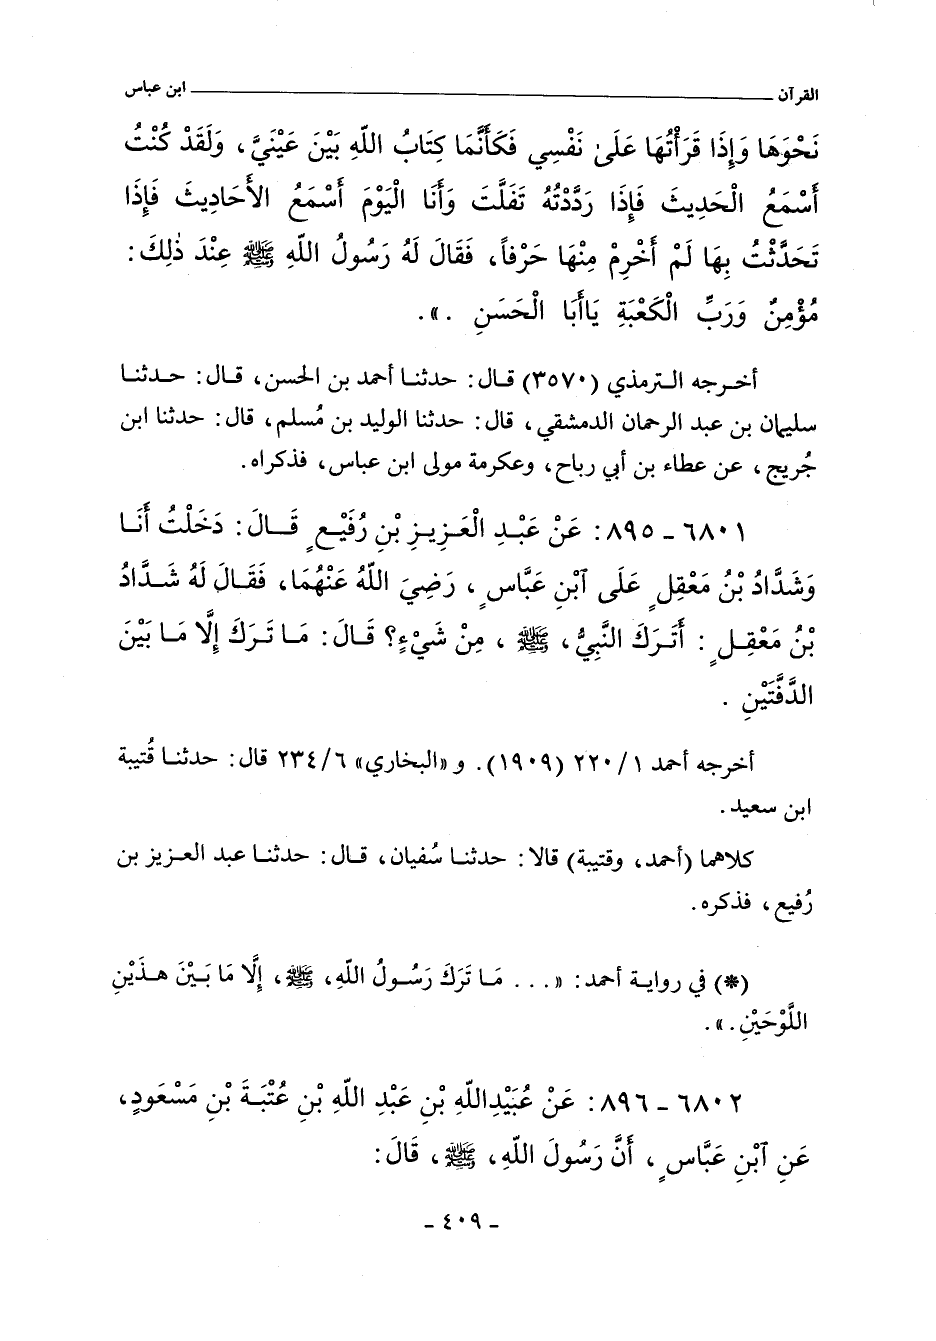 القرآن ــــــــــ ابن عباس
نَحْوَهَا وَإِذَا قَرَأْتُهَا عَلَىٰ نَفْسِي فَكَأَنَّمَا كِتَابُ اللّهِ بَيْنَ عَيْنَيَّ، وَلَقَدْ كُنْتُ
أَسْمَعُ الْحَدِيثَ فَإِذَا رَدَّدْتُهُ تَفَلَّتَ وَأَنَا الْيَوْمَ أَسْمَعُ الأَحَادِيثَ فَإِذَا
تَحَدَّثْتُ بِهَا لَمْ أَخْرِمْ مِنْهَا حَرْفاً، فَقَالَ لَهُ رَسُولُ اللّهِ ﷺ عِنْدَ ذٰلِكَ:
مُؤْمِنٌ وَرَبِّ الْكَعْبَةِ يَاأَبَا الْحَسَنِ .».
أخرجه الترمذي (٣٥٧٠) قال: حدثنا أحمد بن الحسن، قال: حدثنا
سليمان بن عبد الرحمان الدمشقي، قال: حدثنا الوليد بن مُسلم، قال: حدثنا ابن
جُريج، عن عطاء بن أبي رباح، وعكرمة مولى ابن عباس، فذكراه.
٦٨٠١ - ٨٩٥: عَنْ عَبْدِ الْعَزِيزِ بْنِ رُفَيْعٍ قَالَ: دَخَلْتُ أَنَا
وَشَدَّادُ بْنُ مَعْقِلٍ عَلَى آبْنِ عَبَّاسٍ، رَضِيَ اللّهُ عَنْهُمَا، فَقَالَ لَهُ شَدَّادُ
بْنُ مَعْقِلٍ: أَتَرَكَ النَّبِيُّ، ﷺ، مِنْ شَيْءٍ؟ قَالَ: مَا تَرَكَ إِلَّا مَا بَيْنَ
الدَّفَّتَيْنِ .
أخرجه أحمد ١/ ٢٢٠ (١٩٠٩). و«البخاري» ٦/ ٢٣٤ قال: حدثنا قُتيبة
ابن سعيد.
كلاهما (أحمد، وقتيبة) قالا: حدثنا سُفيان، قال: حدثنا عبد العزيز بن
رُفيع، فذكره.
(*) في رواية أحمد: «... مَا تَرَكَ رَسُولُ اللّهِ، ﷺ، إِلَّا مَا بَيْنَ هذَيْنِ
اللَّوْحَيْنِ.».
٦٨٠٢ - ٨٩٦: عَنْ عُبَيْدِاللّهِ بْنِ عَبْدِ اللّهِ بْنِ عُتْبَةَ بْنِ مَسْعُودٍ،
عَنِ آبْنِ عَبَّاسٍ، أَنَّ رَسُولَ اللّهِ، ﷺ، قَالَ:
- ٤٠٩ -